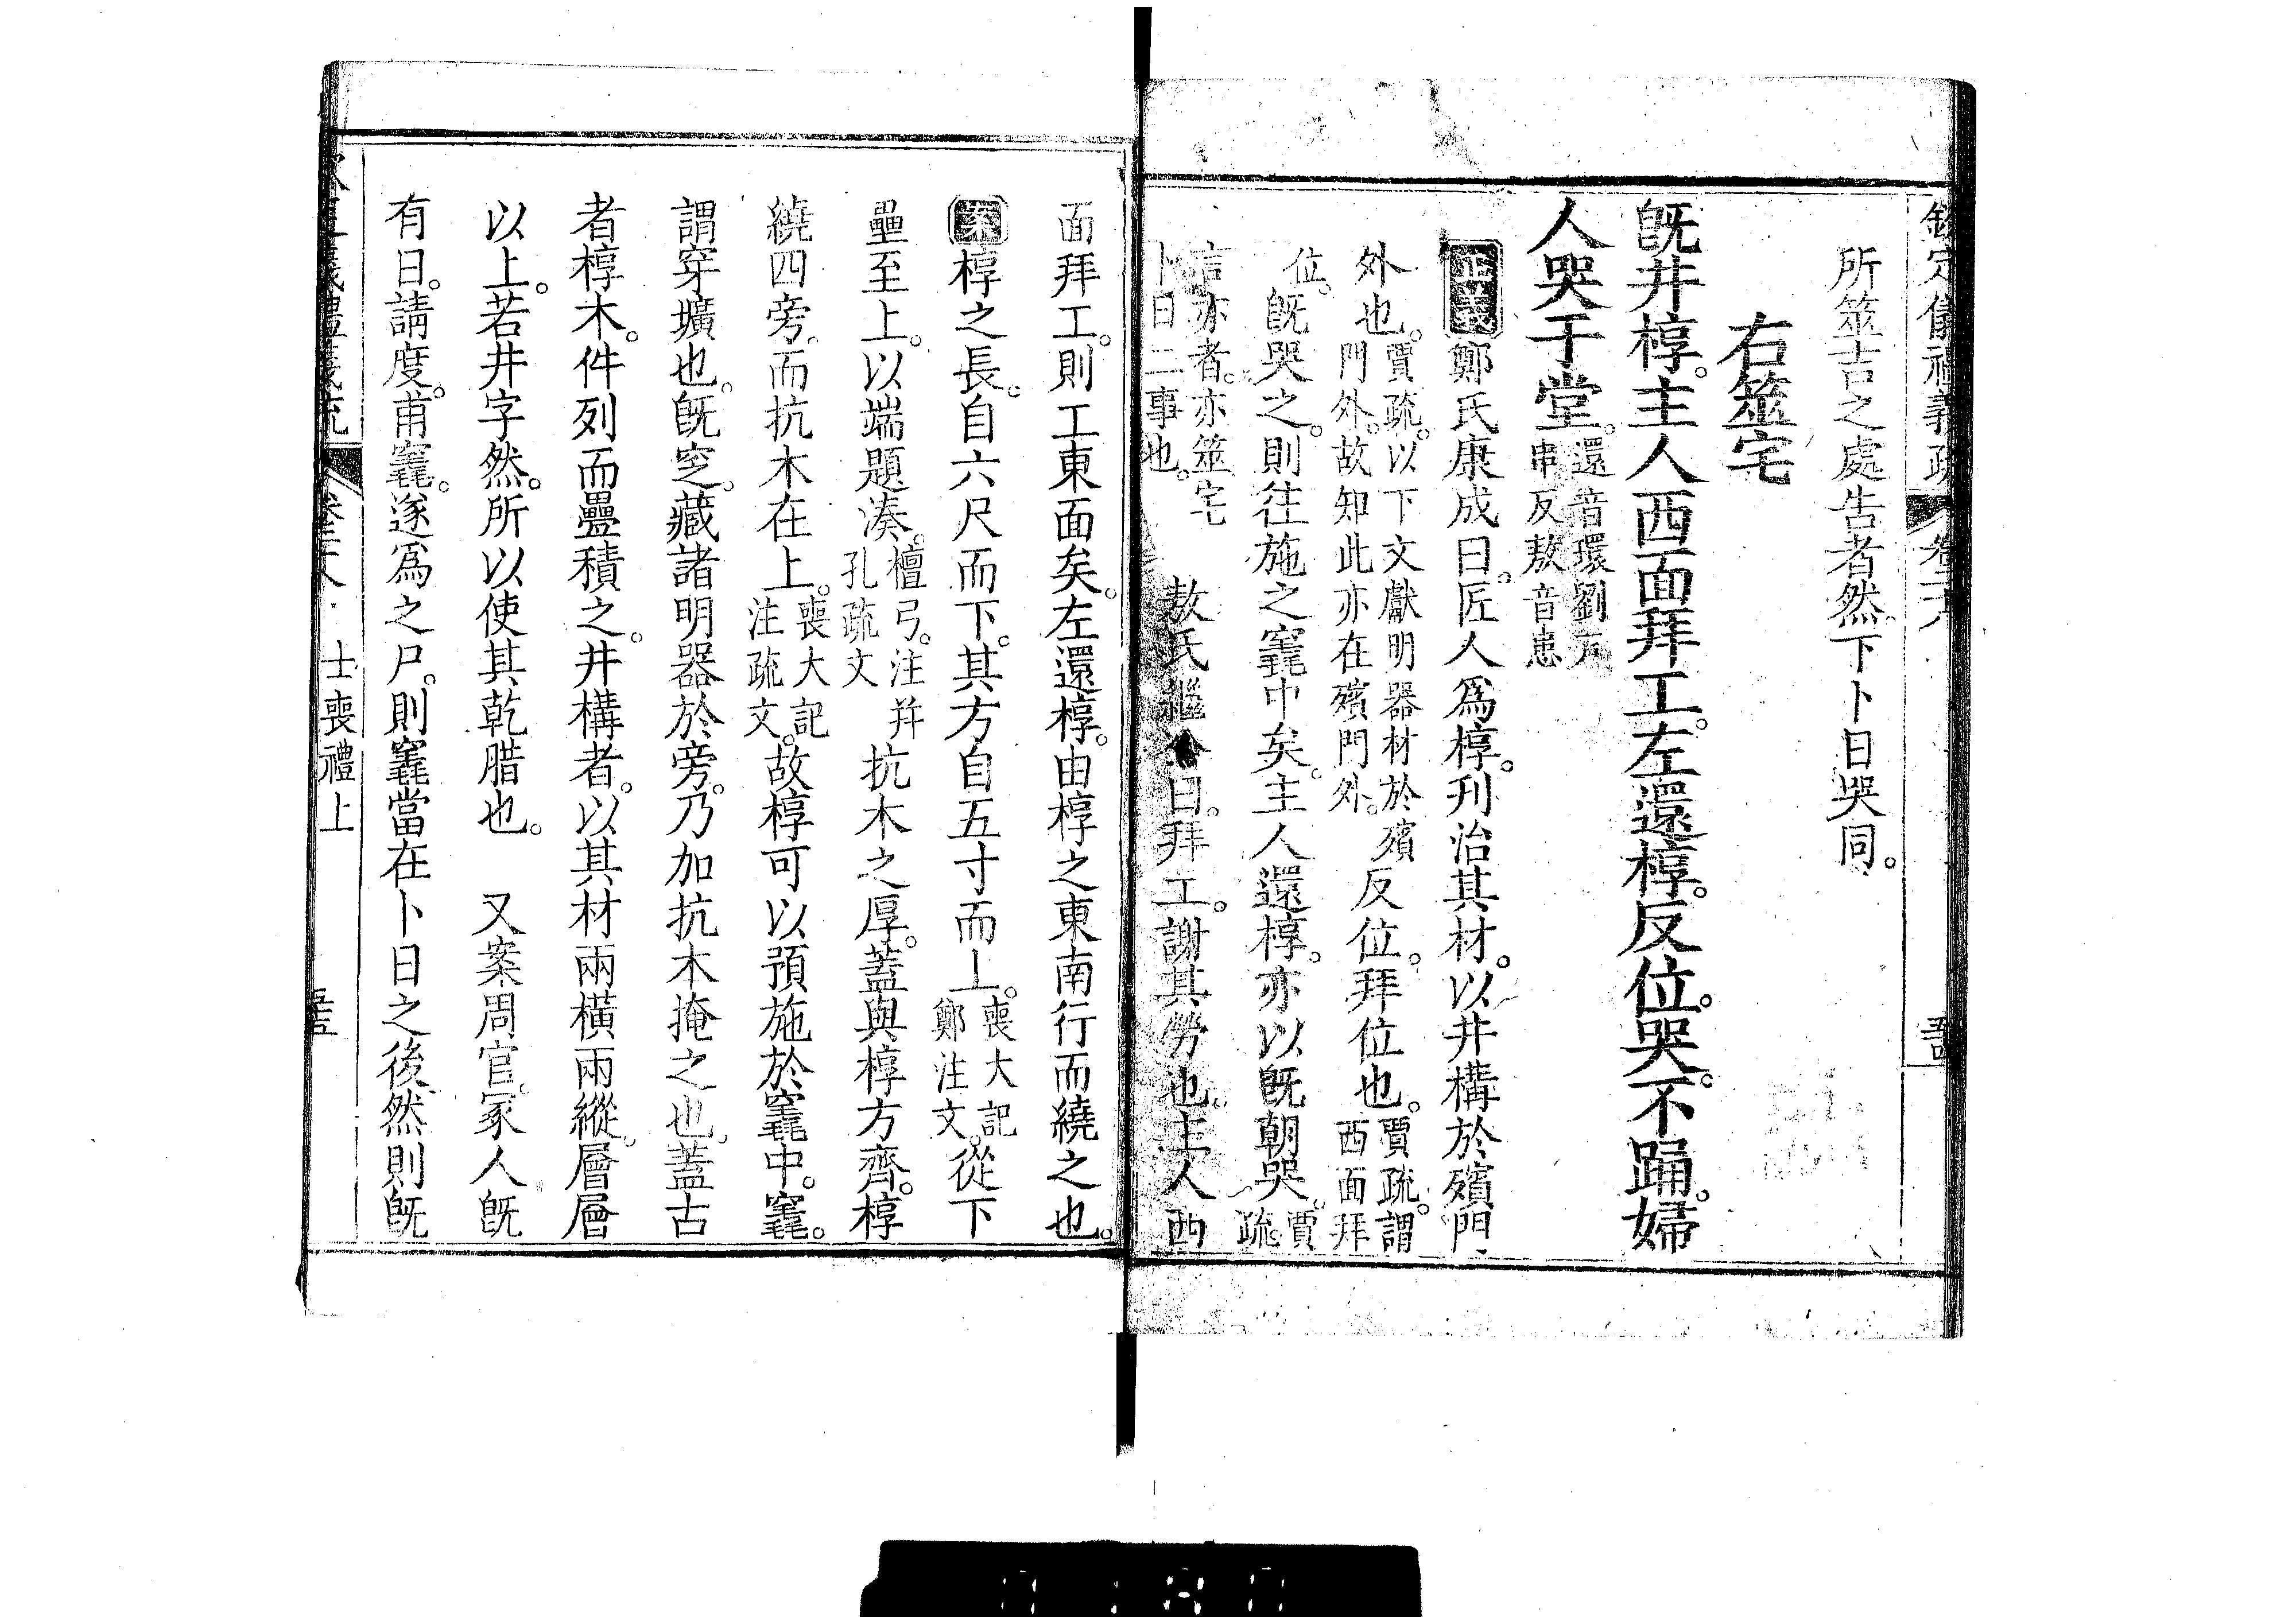 欽定儀禮義疏 卷二八 
所筮吉之處告者然下卜日哭同。
右筮宅
旣井椁。主人西面拜工。左還椁。反位。哭。不踊。婦
人哭于堂。還音環劉
串反敖音患
正義鄭氏康成曰。匠人爲椁。刋治其材。以井構於殯門
外也。賈疏。以下文獻明器材於殯
門外。故知此亦在殯門外。反位。拜位也。賈疏。謂
西面拜
位。旣哭之。則往施之竁中矣。主人還椁。亦以旣朝哭。賈
疏。
言亦者。亦筮宅
卜日二事也。敖氏繼公曰。拜工。謝其勞也。主人西
面拜工。則工東面矣。左還椁。由椁之東南行而繞之也。
案椁之長。自六尺而下。其方自五寸而上。喪大記
鄭注文。從下
壘至上。以端題湊。檀弓。注并
孔疏文抗木之厚。蓋與椁方齊。椁
繞四旁。而抗木在上。喪大記
注疏文。故椁可以預施於竁中。竁。
謂穿壙也。旣窆。藏諸明器於旁。乃加抗木掩之也。蓋古
者椁木。件列而疊積之。井構者。以其材兩橫兩縱。層層
以上。若井字然。所以使其乾腊也。 又案周官。冢人旣
有日。請度。甫竁。遂爲之尸。則竁當在卜日之後。然則旣
士喪禮上